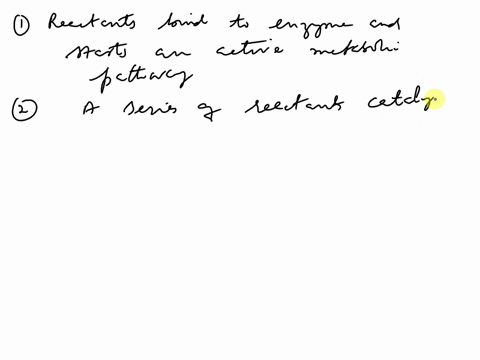 ① Reactants bind to enzyme and
starts an active metabolic
pathway
② A series of reactants cataly